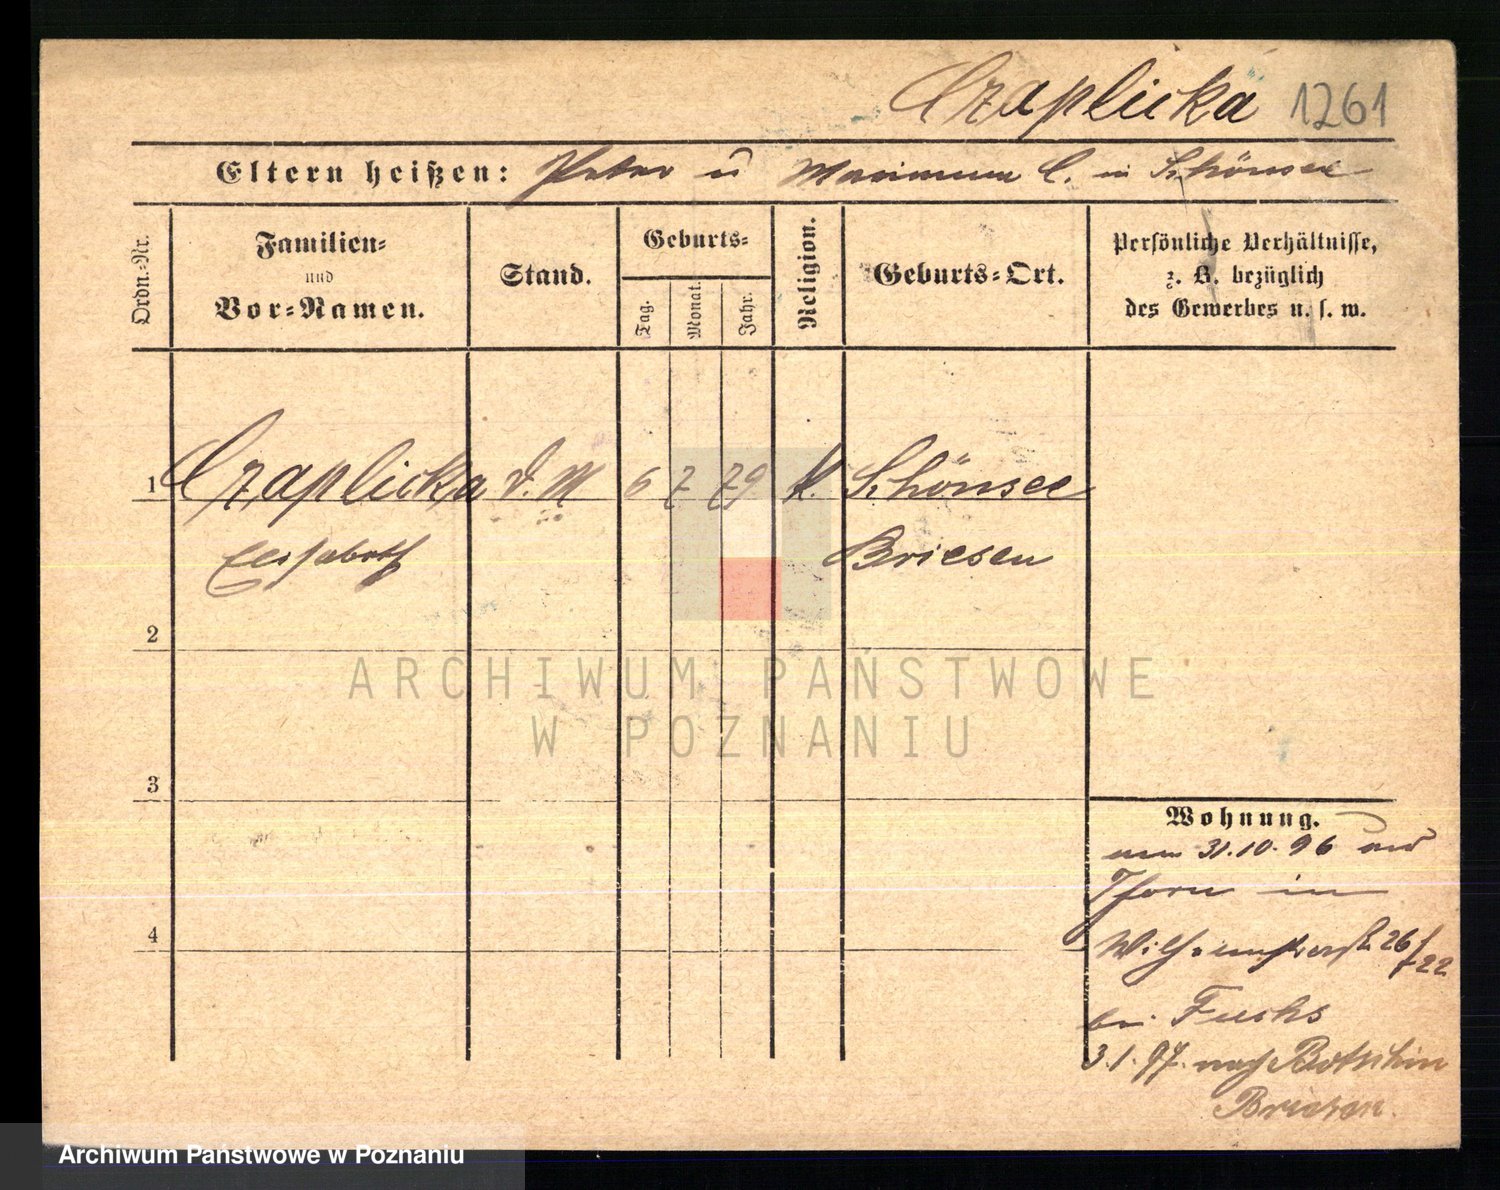 Czaplicka 1261
Eltern heißen: Peter u Marianna C. in Schönsee
Ordn.-Nr.
Familien-
und
Vor-Namen.
Stand.
Geburts-
Tag.
Monat.
Jahr.
Religion.
Geburts-Ort.
Persönliche Verhältnisse,
z. B. bezüglich
des Gewerbes u. s. w.
1 Czaplicka d. M 6 7 79 k. Schönsee
Elisabeth Briesen
2
3
4
Wohnung.
31.10.96
Thorn in
Wilhelmstraße 26/22
bei Fuchs
3.1.97. nach Botschin
Briesen.
ARCHIWUM PAŃSTWOWE
W POZNANIU
Archiwum Państwowe w Poznaniu